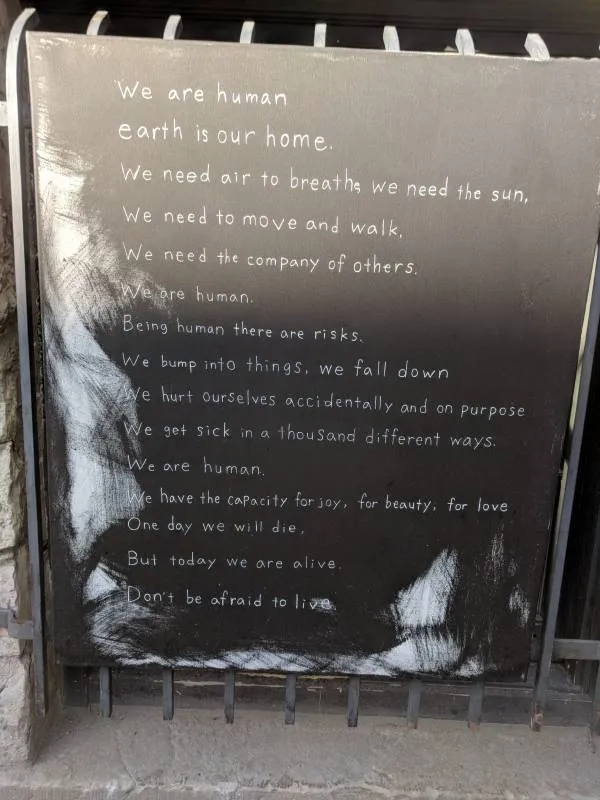 We are human
earth is our home.
We need air to breathe we need the sun,
We need to move and walk,
We need the company of others.
We are human.
Being human there are risks.
We bump into things, we fall down
We hurt ourselves accidentally and on purpose
We get sick in a thousand different ways.
We are human.
We have the capacity for joy, for beauty, for love
One day we will die,
But today we are alive.
Don't be afraid to live.